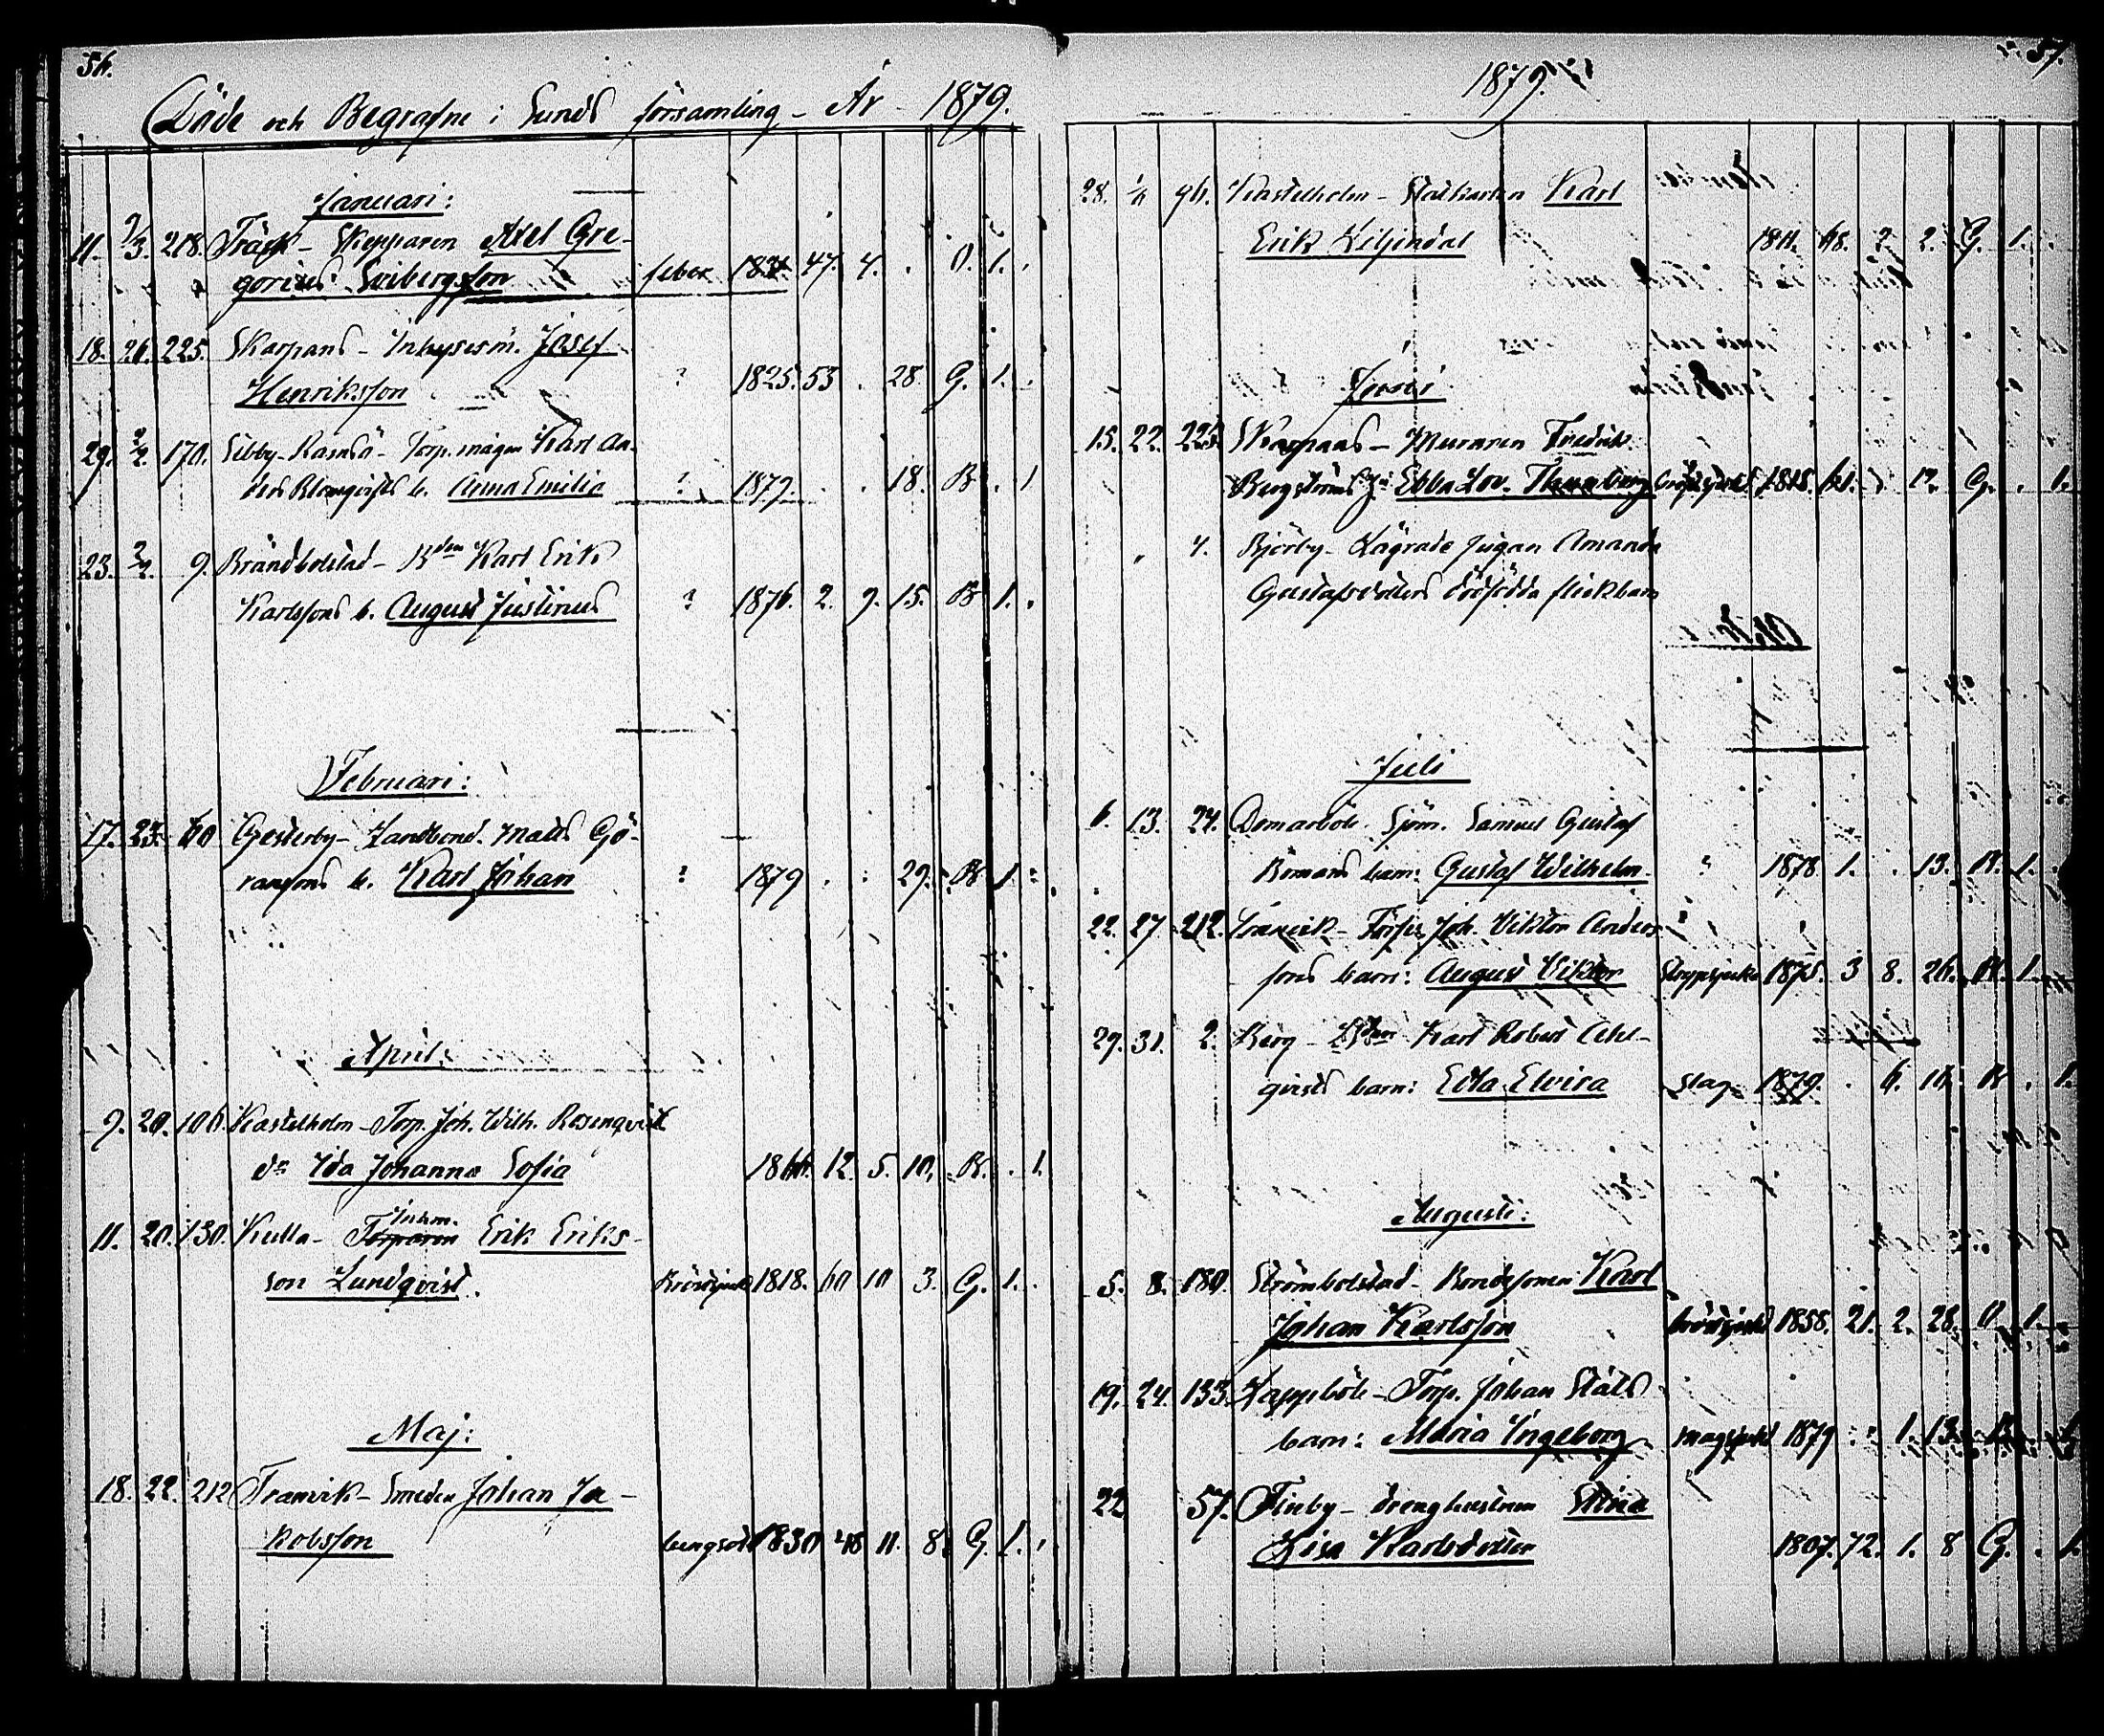 56.
Döde och Begrafne i Sunds församling - År 1879.
Januari:
11. 2/3. 218. Träsk - Skepparen Axel Gre-
gorius Seibergsson feber 1831. 47. 4. . O. 1. .
18. 26. 225. Skarpans - Inhysesm. Josef
Henriksson ? 1825. 53 . 28. G. 1. .
29. 2/2. 170. Sibby - Torp.mågen Karl An-
ders Blomqvists b. Anna Emilia ? 1879. . . 18. B . 1
23. 2/2. 9. Brändbolstad - Bden Karl Erik
Karlssons b. August Justinus ? 1876. 2. 9. 15. B 1. .
Februari:
17. 23. 60 Gesterby - Landbond. Matts Gö-
ranssons b. Karl Johan ? 1879 . . 29. B 1.
April:
9. 20. 106. Kastelholm - Torp. Joh. Wilh. Rosenqvist
dr Ida Johanna Sofia 1866. 12. 5. 10. B. . 1.
11. 20. 130. Kulla - Torparen Inhm. Erik Eriks-
son Lundqvist. Bröstsjuka 1818. 60 10 3. G. 1. .
Maj:
18. 22. 212 Tranvik - Smeden Johan Ja-
kobsson lungsot 1830 48 11. 8. G. 1. .
57.
1879.
28. 96. Kastelholm - Karl
Erik Liljendal 1811. 68. 2. 2. G. 1. .
Juni
15. 22. 225. Skarpans - Muraren Fredrik
Bergströms Ebba Lov. Thunberg bröstsjukd. 1818. 61. . 12. G. . 1.
" 4. Björby - Lägrade pigan Amanda
Gustafsdotters dödfödda flickbarn
Juli
6. 13. 24. Domarböle Sjöm. Samuel Gustaf
Bömans barn: Gustaf Wilhelm " 1878. 1. . 13. B. 1. .
22. 27 212. Tranvik - Joh. Viktor Anders-
sons barn: August Viktor Strypsjuka 1875. 3 8. 26. B. 1.
29. 31. 2. Berg - Karl Robert Ahl-
qvists barn: Edla Elvira Slag 1879. . 6. 16. B . 1.
Augusti:
5. 8. 180. Strömbolstad - Bondesonen Karl
Johan Karlsson bröstsjukd 1858. 21. 2. 28. O. 1.
19. 24. 133. Kappböle - Torp. Johan Ståls
barn: Maria Ingeborg magsjukd 1879 . 1. 13. B. . 1.
22 57. Finby - Drenghustrun Stina
Lisa Karlsdotter 1807. 72. 1. 8 G. . 1.